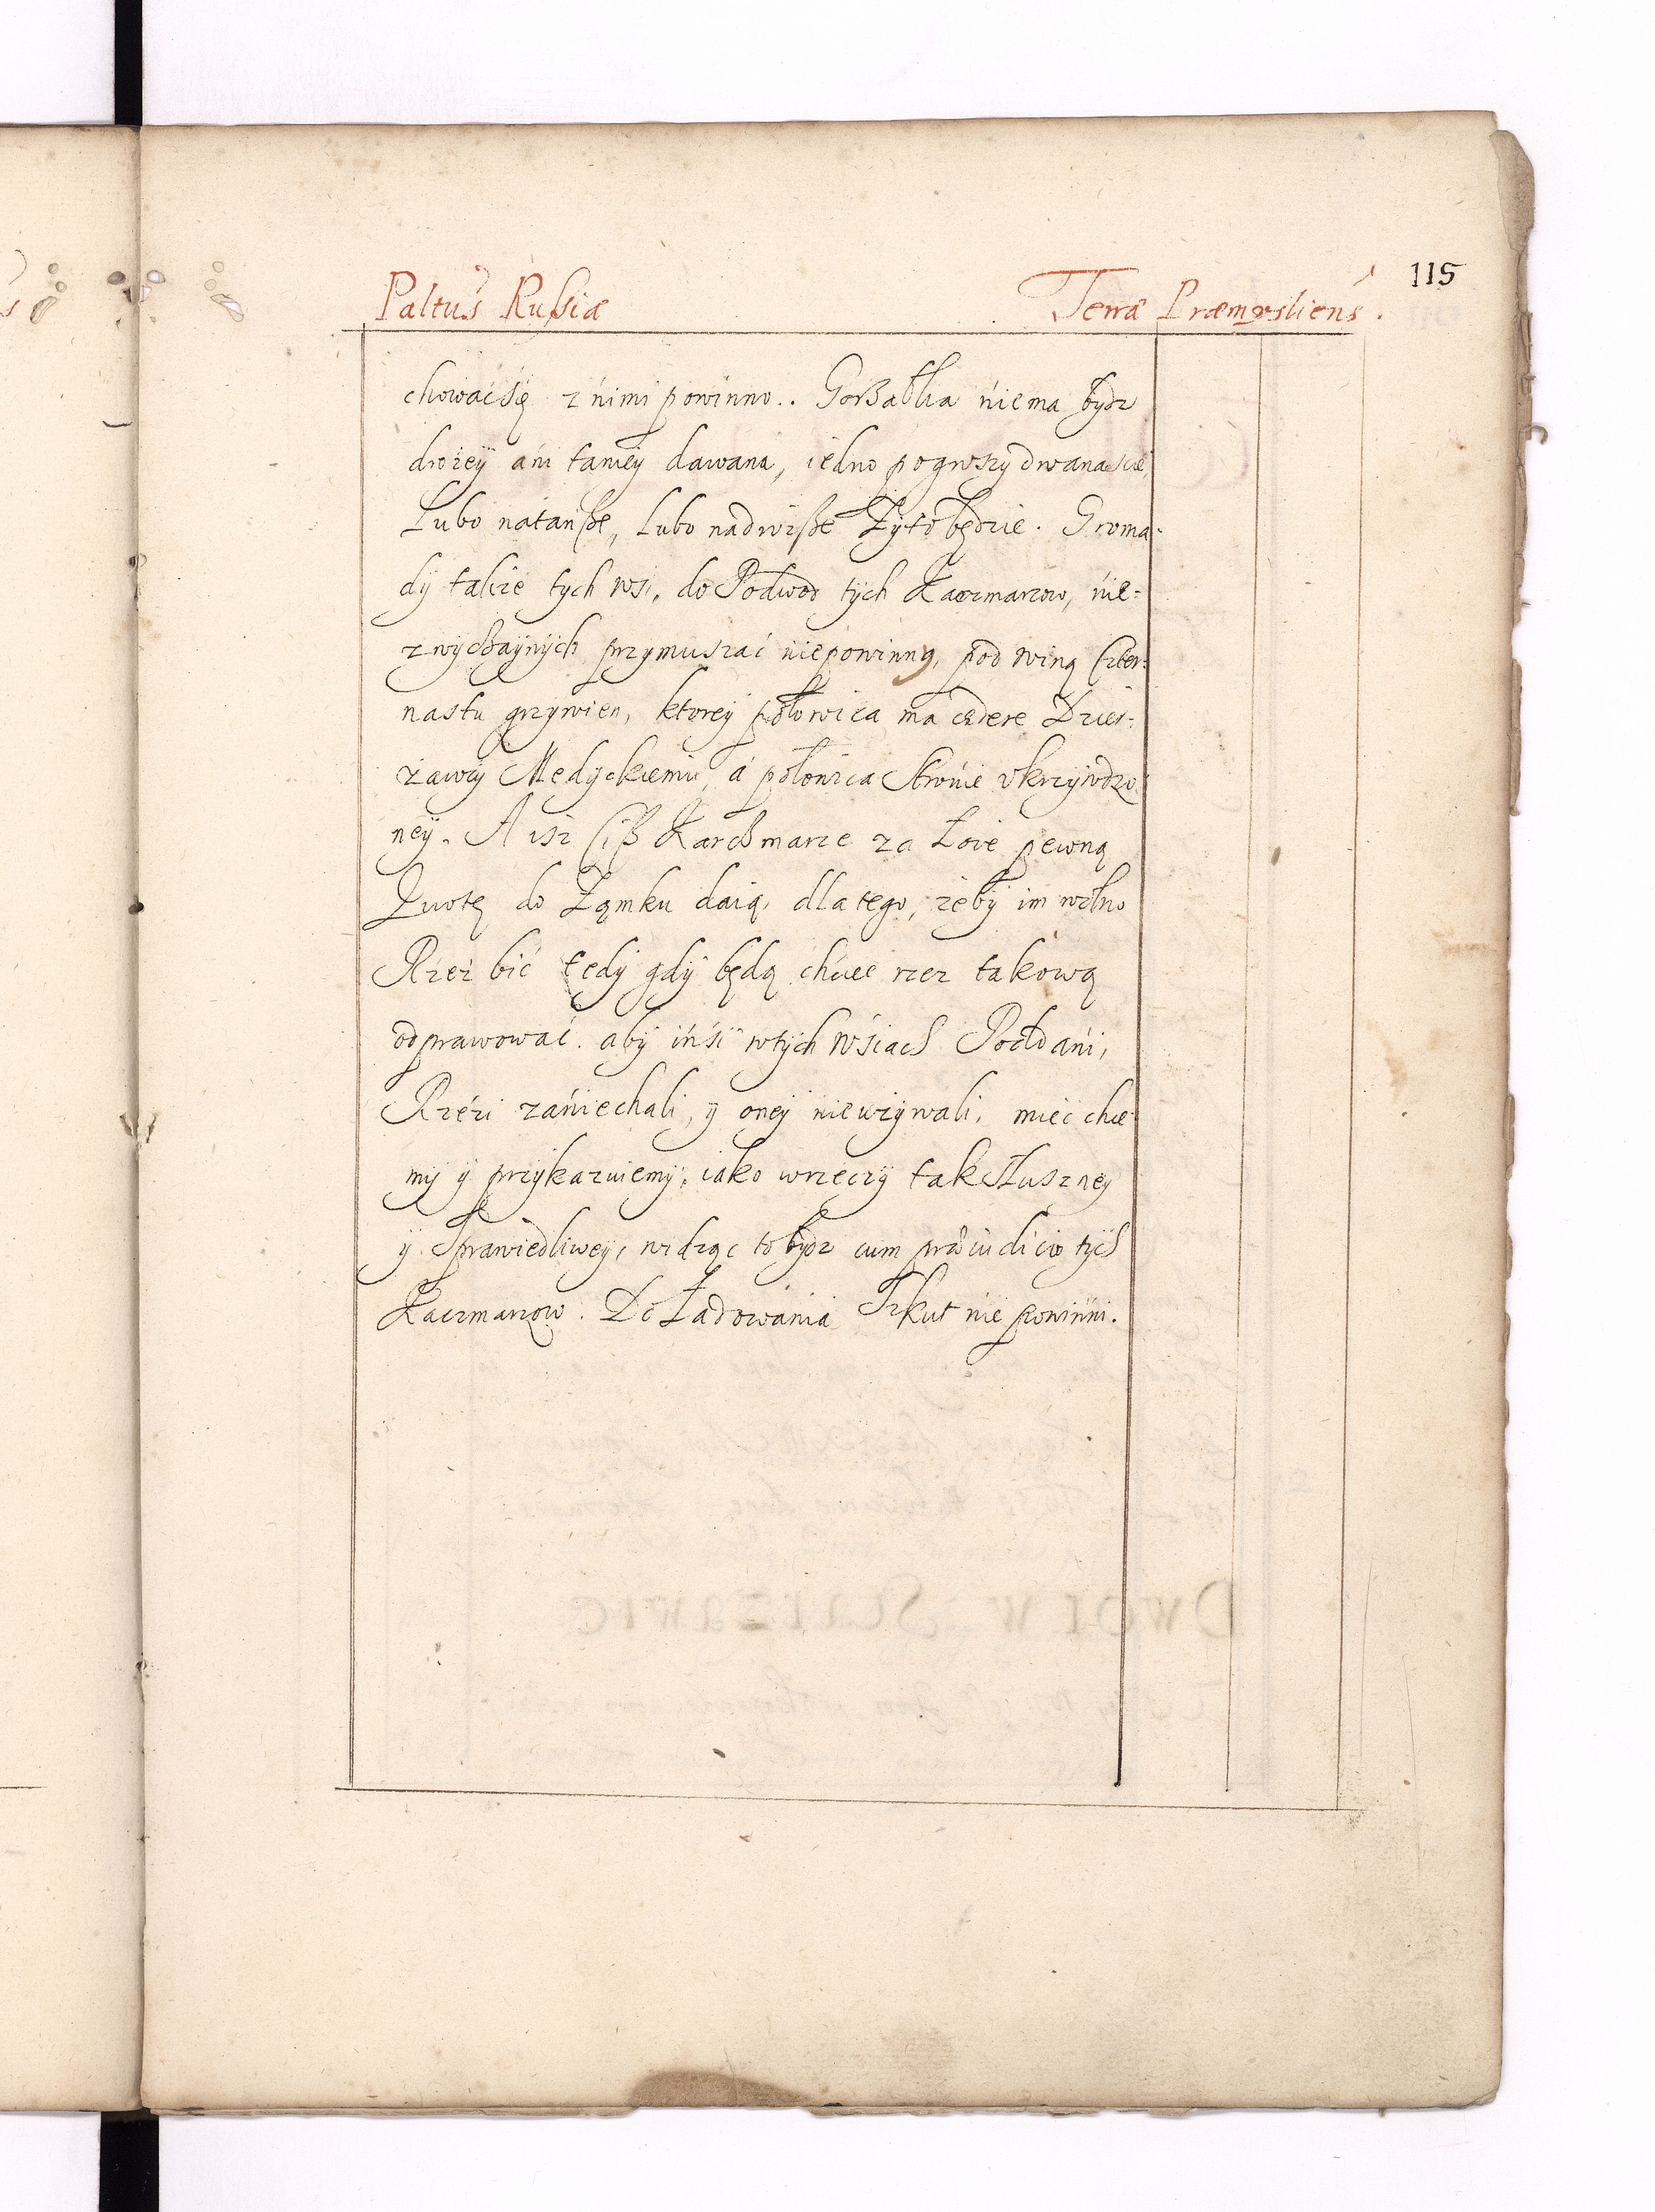 115
Paltus Rußiæ Terræ Præmysliens.
chować się z nimi powinno.. Gorzałka niema bydz
drożey ani taniey dawana, iedno po groszy dwanaście,
Lubo natańsze, Lubo nadroższe Żyto będzie. Groma-
dy także tych wsi, do Podwod tych Kaczmarzow, nie-
zwyczaynych przymuszać niepowinny, pod winą Czter-
nastu grzywien, ktorey połowica ma cedere Dzier-
żawcy Medyckiemu, a połowica Stronie ukrzywdzo-
ney. A isz ciż Karczmarze za Łoie pewną
Quotę do Zamku daią, dla tego, żeby im wolno
Rzeź bić tedy gdy będą chcieć rzez takową
odprawować. aby inśi w tych wsiach Poddani,
Rzezi zaniechali, y oney nieużywali, mieć chce-
my y przykazuiemy, iako w rzeczy tak słuszney
y sprawiedliwey, widząc to bydz cum præiudicio tych
Kaczmarzow. Do Ładowania Szkut nie powinni.